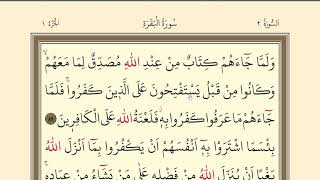 اَلسُّورَةُ ٢ سُورَةُ الْبَقَرَةِ اَلْجُزْءُ ١
وَلَمَّا جَاءَهُمْ كِتَابٌ مِنْ عِنْدِ اللّٰهِ مُصَدِّقٌ لِمَا مَعَهُمْۙ
وَكَانُوا مِنْ قَبْلُ يَسْتَفْتِحُونَ عَلَى الَّذِينَ كَفَرُواۚ فَلَمَّا
جَاءَهُمْ مَا عَرَفُوا كَفَرُوا بِهِۘ فَلَعْنَةُ اللّٰهِ عَلَى الْكَافِرِينَ ٨٩
بِئْسَمَا اشْتَرَوْا بِهِٓ اَنْفُسَهُمْ اَنْ يَكْفُرُوا بِمَٓا اَنْزَلَ اللّٰهُ
بَغْيًا اَنْ يُنَزِّلَ اللّٰهُ مِنْ فَضْلِهِ عَلٰى مَنْ يَشَٓاءُ مِنْ عِبَادِهِۚ